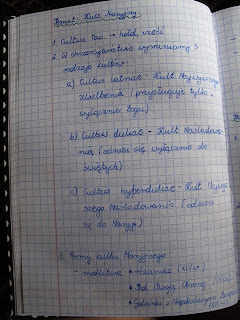 Temat: Kult Maryjny
1. Cultus łac. → hołd, cześć
2. W chrześcijaństwie wymieniamy 3
rodzaje kultów:
a) Cultus latriae - Kult Najwyższego
Uwielbienia (przysługuje tylko i
wyłącznie Bogu)
b) Cultus duliae - Kult Naśladowa-
nia (odnosi się wyłącznie do
świętych)
c) Cultus hyperduliae - Kult Najwyż-
szego Naśladowania (odnosi
się do Maryji)
3. Formy kultu Maryjnego
- modlitwa: • różaniec (XI/
• Pod Twoją Obronę
• Godzinki o Niepokalanym